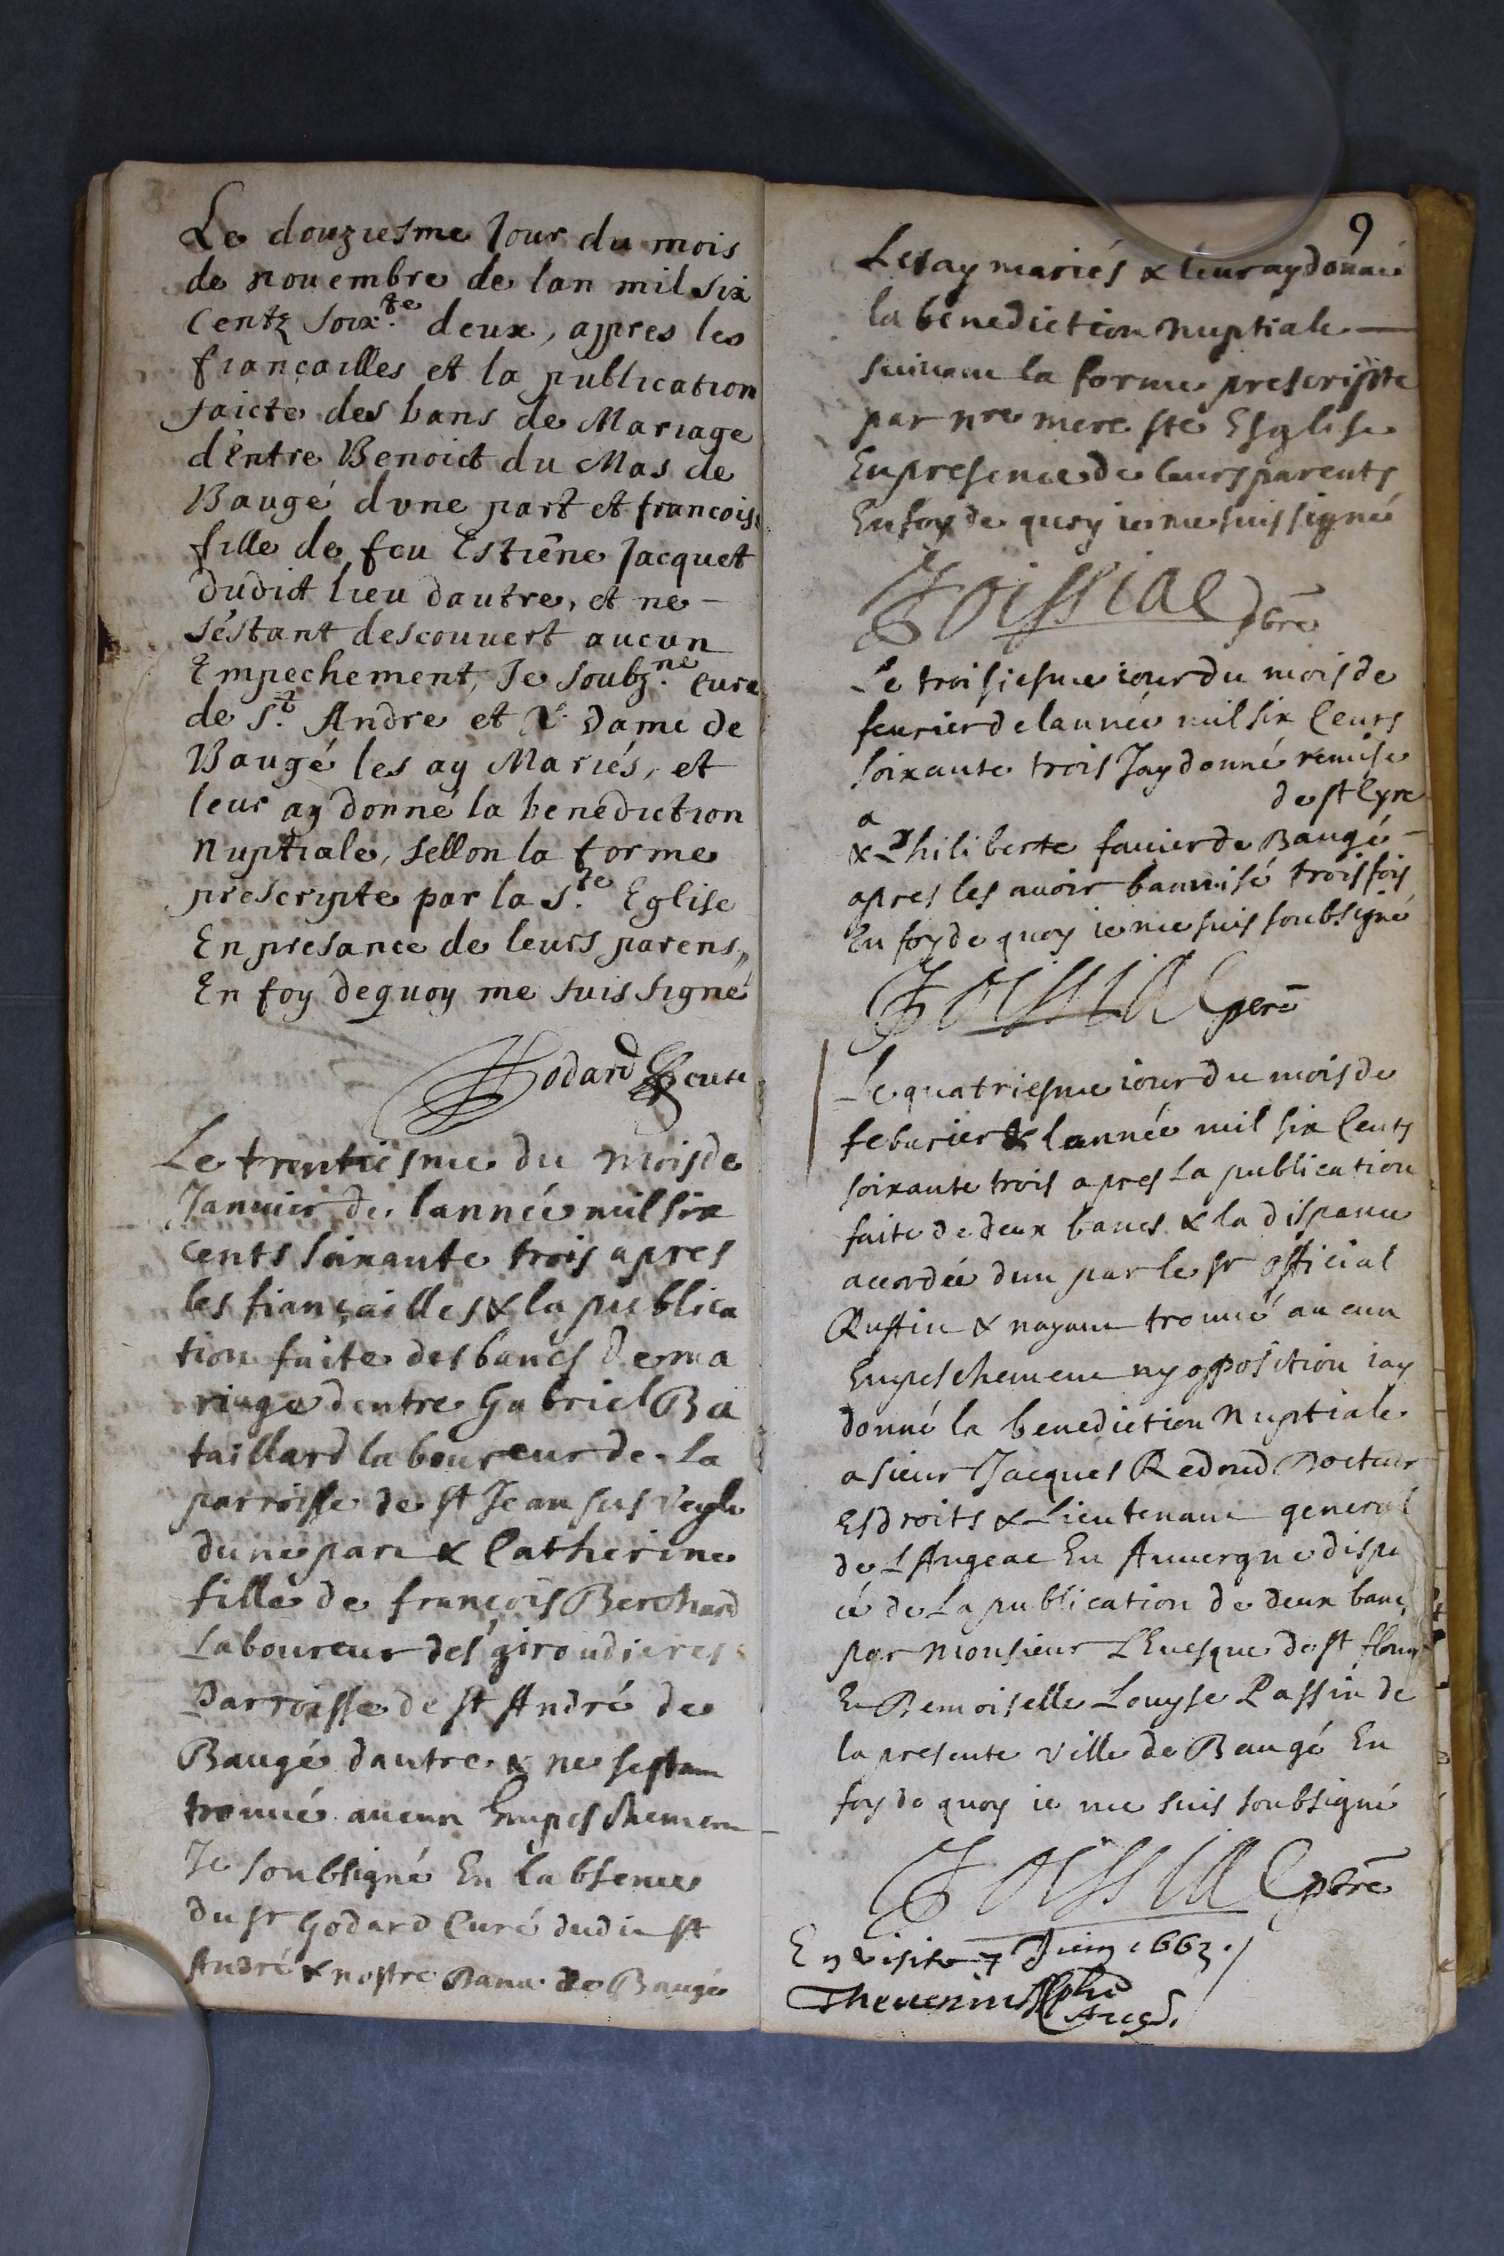 Le douziesme Jour du mois
de nouembre de lan mil six
Centz soix.te deux, appres les
fiançailles et la publication
faicte des bans de Mariage
d'Entre Benoict du Mas de
Baugé dvne part et francois
fille de feu Estiene Jacquet
dudict lieu dautre, et ne -
s'éstant descouuert aucun
Empechement, Je soubz.ne Cure
de S.t Andre et N. Dame de
Baugé les ay Mariés, et
leur ay donné la benediction
Nuptiale, sellon la forme
prescripte par la S.te Eglise
En presance de leurs parens,
En foy dequoy me suis signé
Godard cure
Le trentiesme du mois de
Januier de lannée mil six
cents soixante trois apres
les fiançailles & la publica
tion faite des bancs de ma
riage dentre Gabriel Ba
taillard laboureur de la
parroisse de st Jean sus Veyle
dune part & Catherine
fille de françois Berthard
Laboureur des giroudieres
Parroisse de st André de
Baugé dautre & ne sestant
trouué aucun Empeschement
Je soubsigné En labsence
du sr Godard Curé dudit st
André & nostre Dame de Baugé
9
Les ay mariés & leur ay donné
la benediction Nuptiale
suiuant la forme prescripte
par nre mere ste Esglise
En presence de leurs parents
En foy de quoy ie me suis signé
Foissiac pbre
Le troisiesme iour du mois de
feurier de lannée mil six Cents
soixante trois Jay donné remise
a de st Cyre
& Philiberte fauier de Baugé
apres les auoir bannisé trois fois
En foy de quoy ie me suis soubsigné
Foissiac pbre
Le quatriesme iour du mois de
feburier de lannée mil six Cents
soixante trois apres La publication
faite de deux bancs & la dispance
accordée dun par le sr official
Ruffin & nayant trouué aucun
Empeschement ny opposition iay
donné la benediction Nuptiale
a sieur Jacques Redond Docteur
Es droits & Lieutenant general
de LAngeac En Auuergne dispe
cé de La publication de deux bancs
par Monsieur LEuesque de st flour
Et Demoiselle Louyse Passin de
la presente ville de Baugé En
foy de quoy ie me suis soubsigné
Foissiac pbre
En visite 7 Juin 1663.
Theuenin